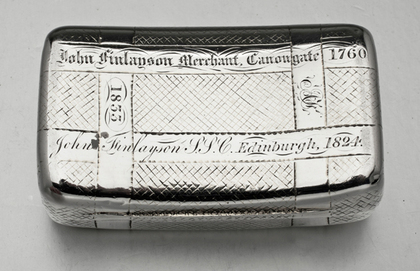 John Finlayson Merchant, Canongate 1760
1833
John Finlayson S.S.C. Edinburgh, 1824.